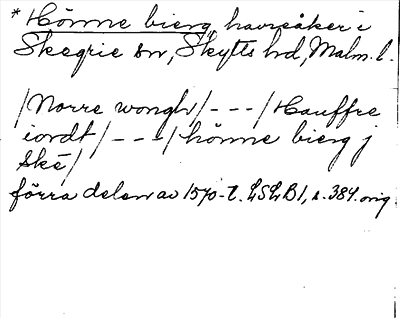 *Hönne bierg, havreåker i
Skegrie sn, Skytts hd, Malm. l.
/Norre wongh/ - - - /Hauffre
iordt/ - - - /hönne bierg j
Ske/
förra delen av 1570-t. LSLB1, s. 384. orig